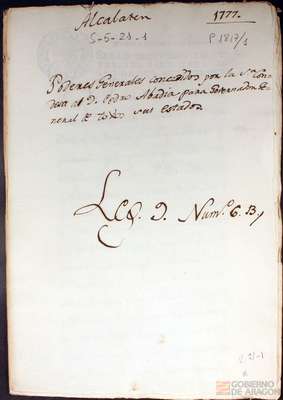 Alcalaten 1777.
S-5-21-1 P 1817/1
Poderes Generales concedidos por la Sra Con
desa al D. Pedro Abadia para Governador Ge
neral de todos sus Estados
Leg. D. Num.º 6. B,
GOBIERNO
DE ARAGON